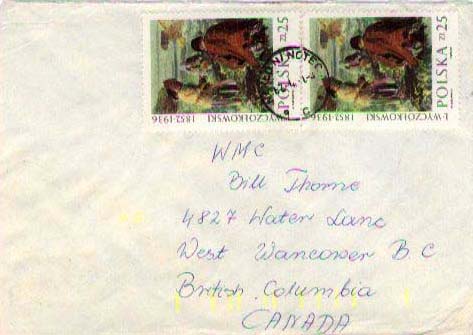 POLSKA zł 25
Ł. WYCZÓŁKOWSKI 1852-1936
POLSKA zł 25
Ł. WYCZÓŁKOWSKI 1852-1936
WMC
Bill Thorne
4827 Water Lane
West Wancower B.C
British Columbia
CANADA